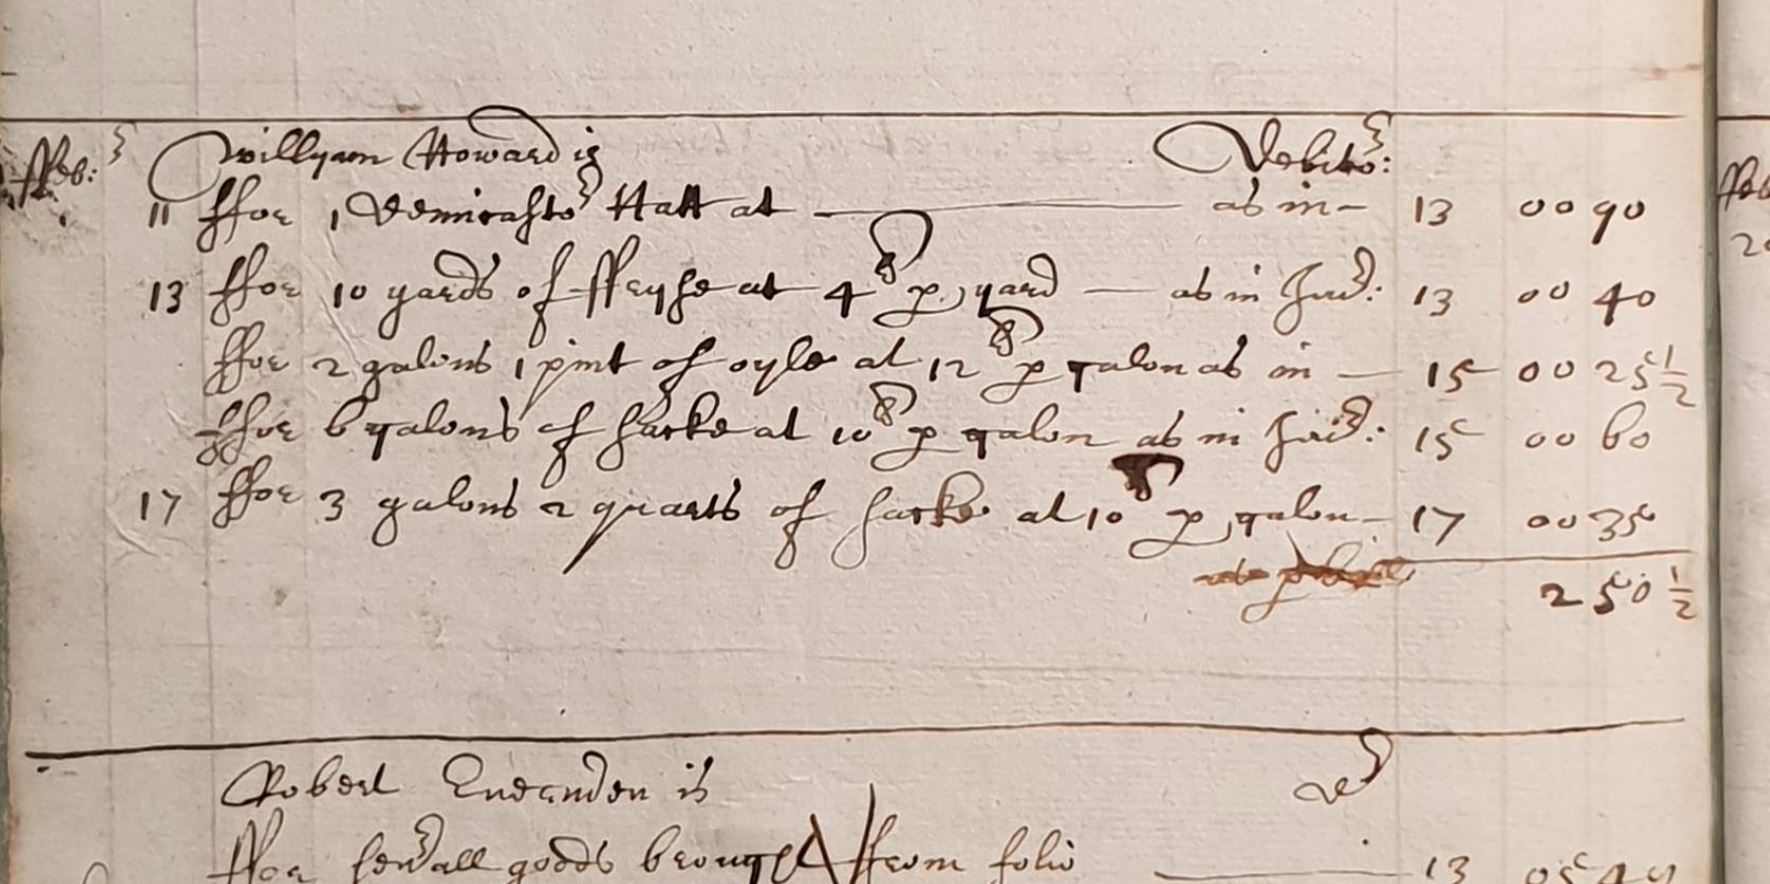 ffeb: willyam Howard is Debitor:
11 ffor 1 Demicastor Hatt at — as in — 13 00 90
13 ffor 10 yards of ffryse at 4 p yard — as in Jurd: 13 00 40
ffor 2 galons 1 pint of oyle at 12 p galon as in — 15 00 25 1/2
ffor 6 galons of sacke at 10 p galon as in Jurd: 15 00 60
17 ffor 3 galons 2 quarts of sacke at 10 p galon — 17 00 35
250 1/2
Robert Evernden is Dr
ffor severall goods brought from folio — 13
ffeb